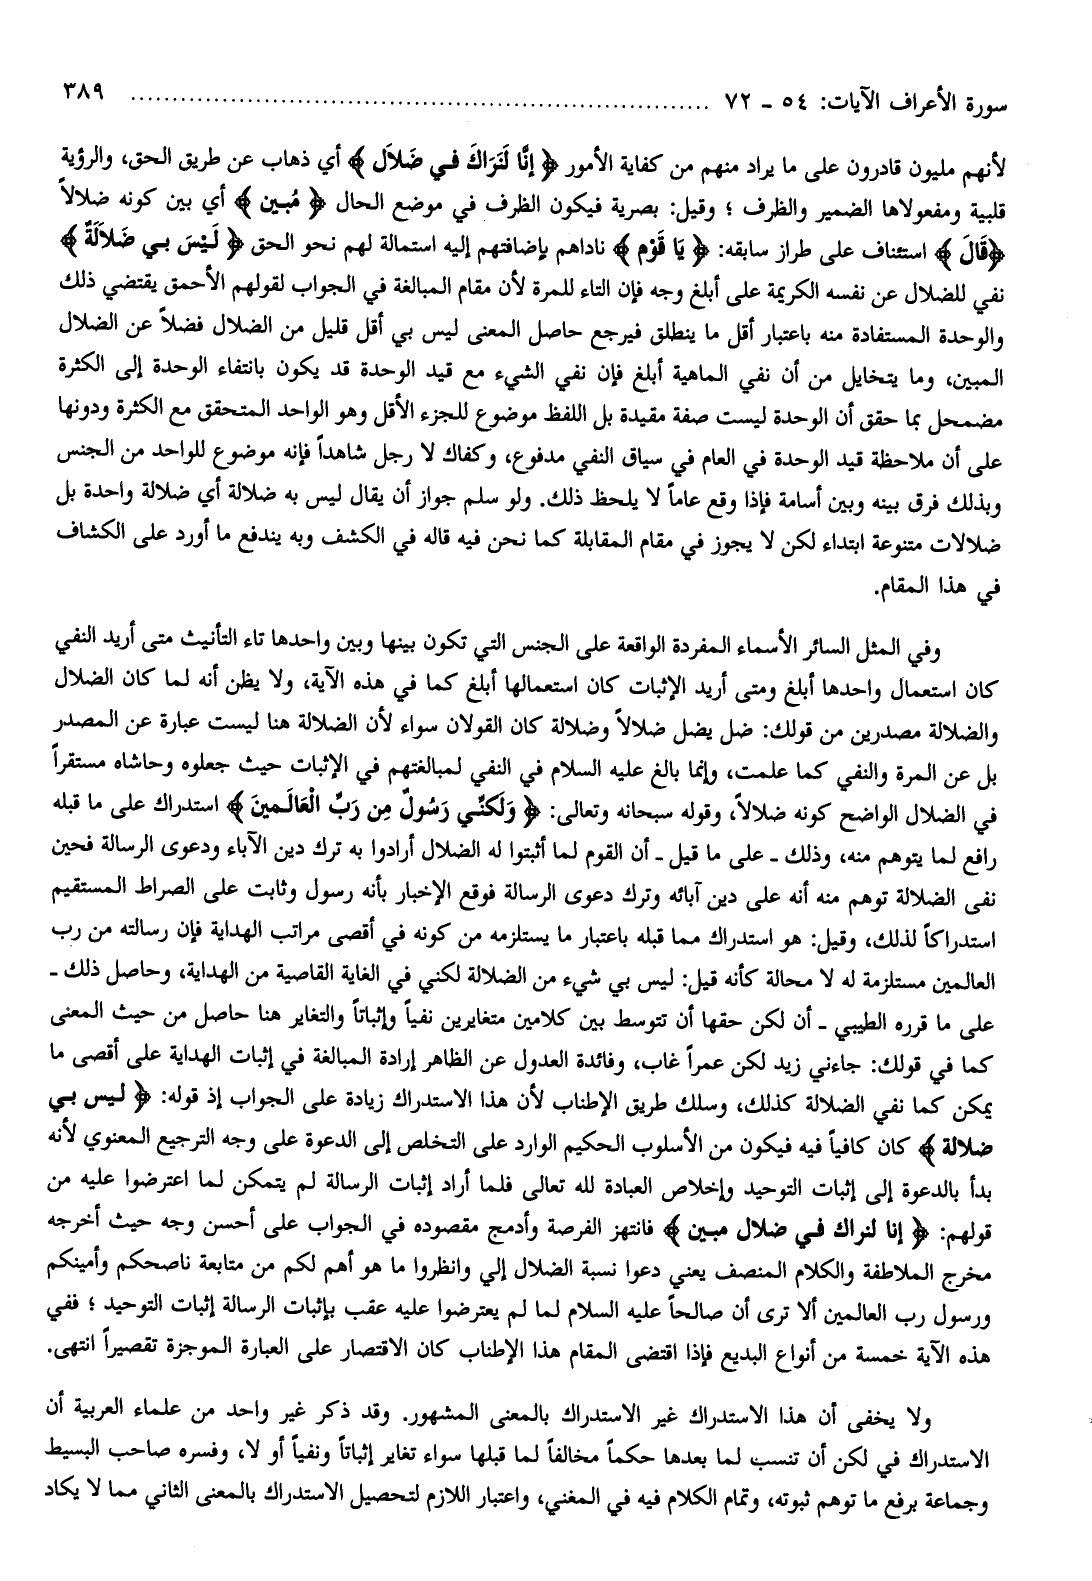 سورة الأعراف الآيات: ٥٤ ـ ٧٢ ................................................ ٣٨٩
لأنهم مليون قادرون على ما يراد منهم من كفاية الأمور ﴿ إِنَّا لَنَرَاكَ فِي ضَلاَلٍ ﴾ أي ذهاب عن طريق الحق، والرؤية
قلبية ومفعولاها الضمير والظرف ؛ وقيل: بصرية فيكون الظرف في موضع الحال ﴿ مُبِين ﴾ أي بين كونه ضلالاً
﴿قَالَ ﴾ استئناف على طراز سابقه: ﴿ يَا قَوْم ﴾ ناداهم بإضافتهم إليه استمالة لهم نحو الحق ﴿ لَيْسَ بي ضَلاَلَةٌ ﴾
نفي للضلال عن نفسه الكريمة على أبلغ وجه فإن التاء للمرة لأن مقام المبالغة في الجواب لقولهم الأحمق يقتضي ذلك
والوحدة المستفادة منه باعتبار أقل ما ينطلق فيرجع حاصل المعنى ليس بي أقل قليل من الضلال فضلاً عن الضلال
المبين، وما يتخايل من أن نفي الماهية أبلغ فإن نفي الشيء مع قيد الوحدة قد يكون بانتفاء الوحدة إلى الكثرة
مضمحل بما حقق أن الوحدة ليست صفة مقيدة بل اللفظ موضوع للجزء الأقل وهو الواحد المتحقق مع الكثرة ودونها
على أن ملاحظة قيد الوحدة في العام في سياق النفي مدفوع، وكفاك لا رجل شاهداً فإنه موضوع للواحد من الجنس
وبذلك فرق بينه وبين أسامة فإذا وقع عاماً لا يلحظ ذلك. ولو سلم جواز أن يقال ليس به ضلالة أي ضلالة واحدة بل
ضلالات متنوعة ابتداء لكن لا يجوز في مقام المقابلة كما نحن فيه قاله في الكشف وبه يندفع ما أورد على الكشاف
في هذا المقام.
وفي المثل السائر الأسماء المفردة الواقعة على الجنس التي تكون بينها وبين واحدها تاء التأنيث متى أريد النفي
كان استعمال واحدها أبلغ ومتى أريد الإثبات كان استعمالها أبلغ كما في هذه الآية، ولا يظن أنه لما كان الضلال
والضلالة مصدرين من قولك: ضل يضل ضلالاً وضلالة كان القولان سواء لأن الضلالة هنا ليست عبارة عن المصدر
بل عن المرة والنفي كما علمت، وإنما بالغ عليه السلام في النفي لمبالغتهم في الإثبات حيث جعلوه وحاشاه مستقراً
في الضلال الواضح كونه ضلالاً، وقوله سبحانه وتعالى: ﴿ وَلَكنِّي رَسُولٌ مِن رَبِّ الْعَالَمينَ ﴾ استدراك على ما قبله
رافع لما يتوهم منه، وذلك ـ على ما قيل ـ أن القوم لما أثبتوا له الضلال أرادوا به ترك دين الآباء ودعوى الرسالة فحين
نفى الضلالة توهم منه أنه على دين آبائه وترك دعوى الرسالة فوقع الإخبار بأنه رسول وثابت على الصراط المستقيم
استدراكاً لذلك، وقيل: هو استدراك مما قبله باعتبار ما يستلزمه من كونه في أقصى مراتب الهداية فإن رسالته من رب
العالمين مستلزمة له لا محالة كأنه قيل: ليس بي شيء من الضلالة لكني في الغاية القاصية من الهداية، وحاصل ذلك ـ
على ما قرره الطيبي ـ أن لكن حقها أن تتوسط بين كلامين متغايرين نفياً وإثباتاً والتغاير هنا حاصل من حيث المعنى
كما في قولك: جاءني زيد لكن عمراً غاب، وفائدة العدول عن الظاهر إرادة المبالغة في إثبات الهداية على أقصى ما
يمكن كما نفي الضلالة كذلك، وسلك طريق الإطناب لأن هذا الاستدراك زيادة على الجواب إذ قوله: ﴿ ليس بي
ضلالة ﴾ كان كافياً فيه فيكون من الأسلوب الحكيم الوارد على التخلص إلى الدعوة على وجه الترجيع المعنوي لأنه
بدأ بالدعوة إلى إثبات التوحيد وإخلاص العبادة لله تعالى فلما أراد إثبات الرسالة لم يتمكن لما اعترضوا عليه من
قولهم: ﴿ إنا لنراك في ضلال مبين ﴾ فانتهز الفرصة وأدمج مقصوده في الجواب على أحسن وجه حيث أخرجه
مخرج الملاطفة والكلام المنصف يعني دعوا نسبة الضلال إلي وانظروا ما هو أهم لكم من متابعة ناصحكم وأمينكم
ورسول رب العالمين ألا ترى أن صالحاً عليه السلام لما لم يعترضوا عليه عقب بإثبات الرسالة إثبات التوحيد ؛ ففي
هذه الآية خمسة من أنواع البديع فإذا اقتضى المقام هذا الإطناب كان الاقتصار على العبارة الموجزة تقصيراً انتهى.
ولا يخفى أن هذا الاستدراك غير الاستدراك بالمعنى المشهور. وقد ذكر غير واحد من علماء العربية أن
الاستدراك في لكن أن تنسب لما بعدها حكماً مخالفاً لما قبلها سواء تغاير إثباتاً ونفياً أو لا، وفسره صاحب البسيط
وجماعة برفع ما توهم ثبوته، وتمام الكلام فيه في المغني، واعتبار اللازم لتحصيل الاستدراك بالمعنى الثاني مما لا يكاد